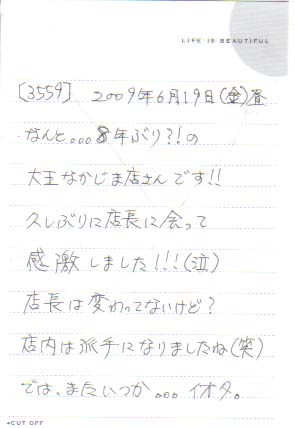 LIFE IS BEAUTIFUL
[3559] 2009年6月19日(金)昼
なんと。。。8年ぶり?!の
大王なかじま店さんです!!
久しぶりに店長に会って
感激しました!!!(泣)
店長は変わってないけど?
店内は派手になりましたね(笑)
では、またいつか。。。イオタ。
◂CUT OFF